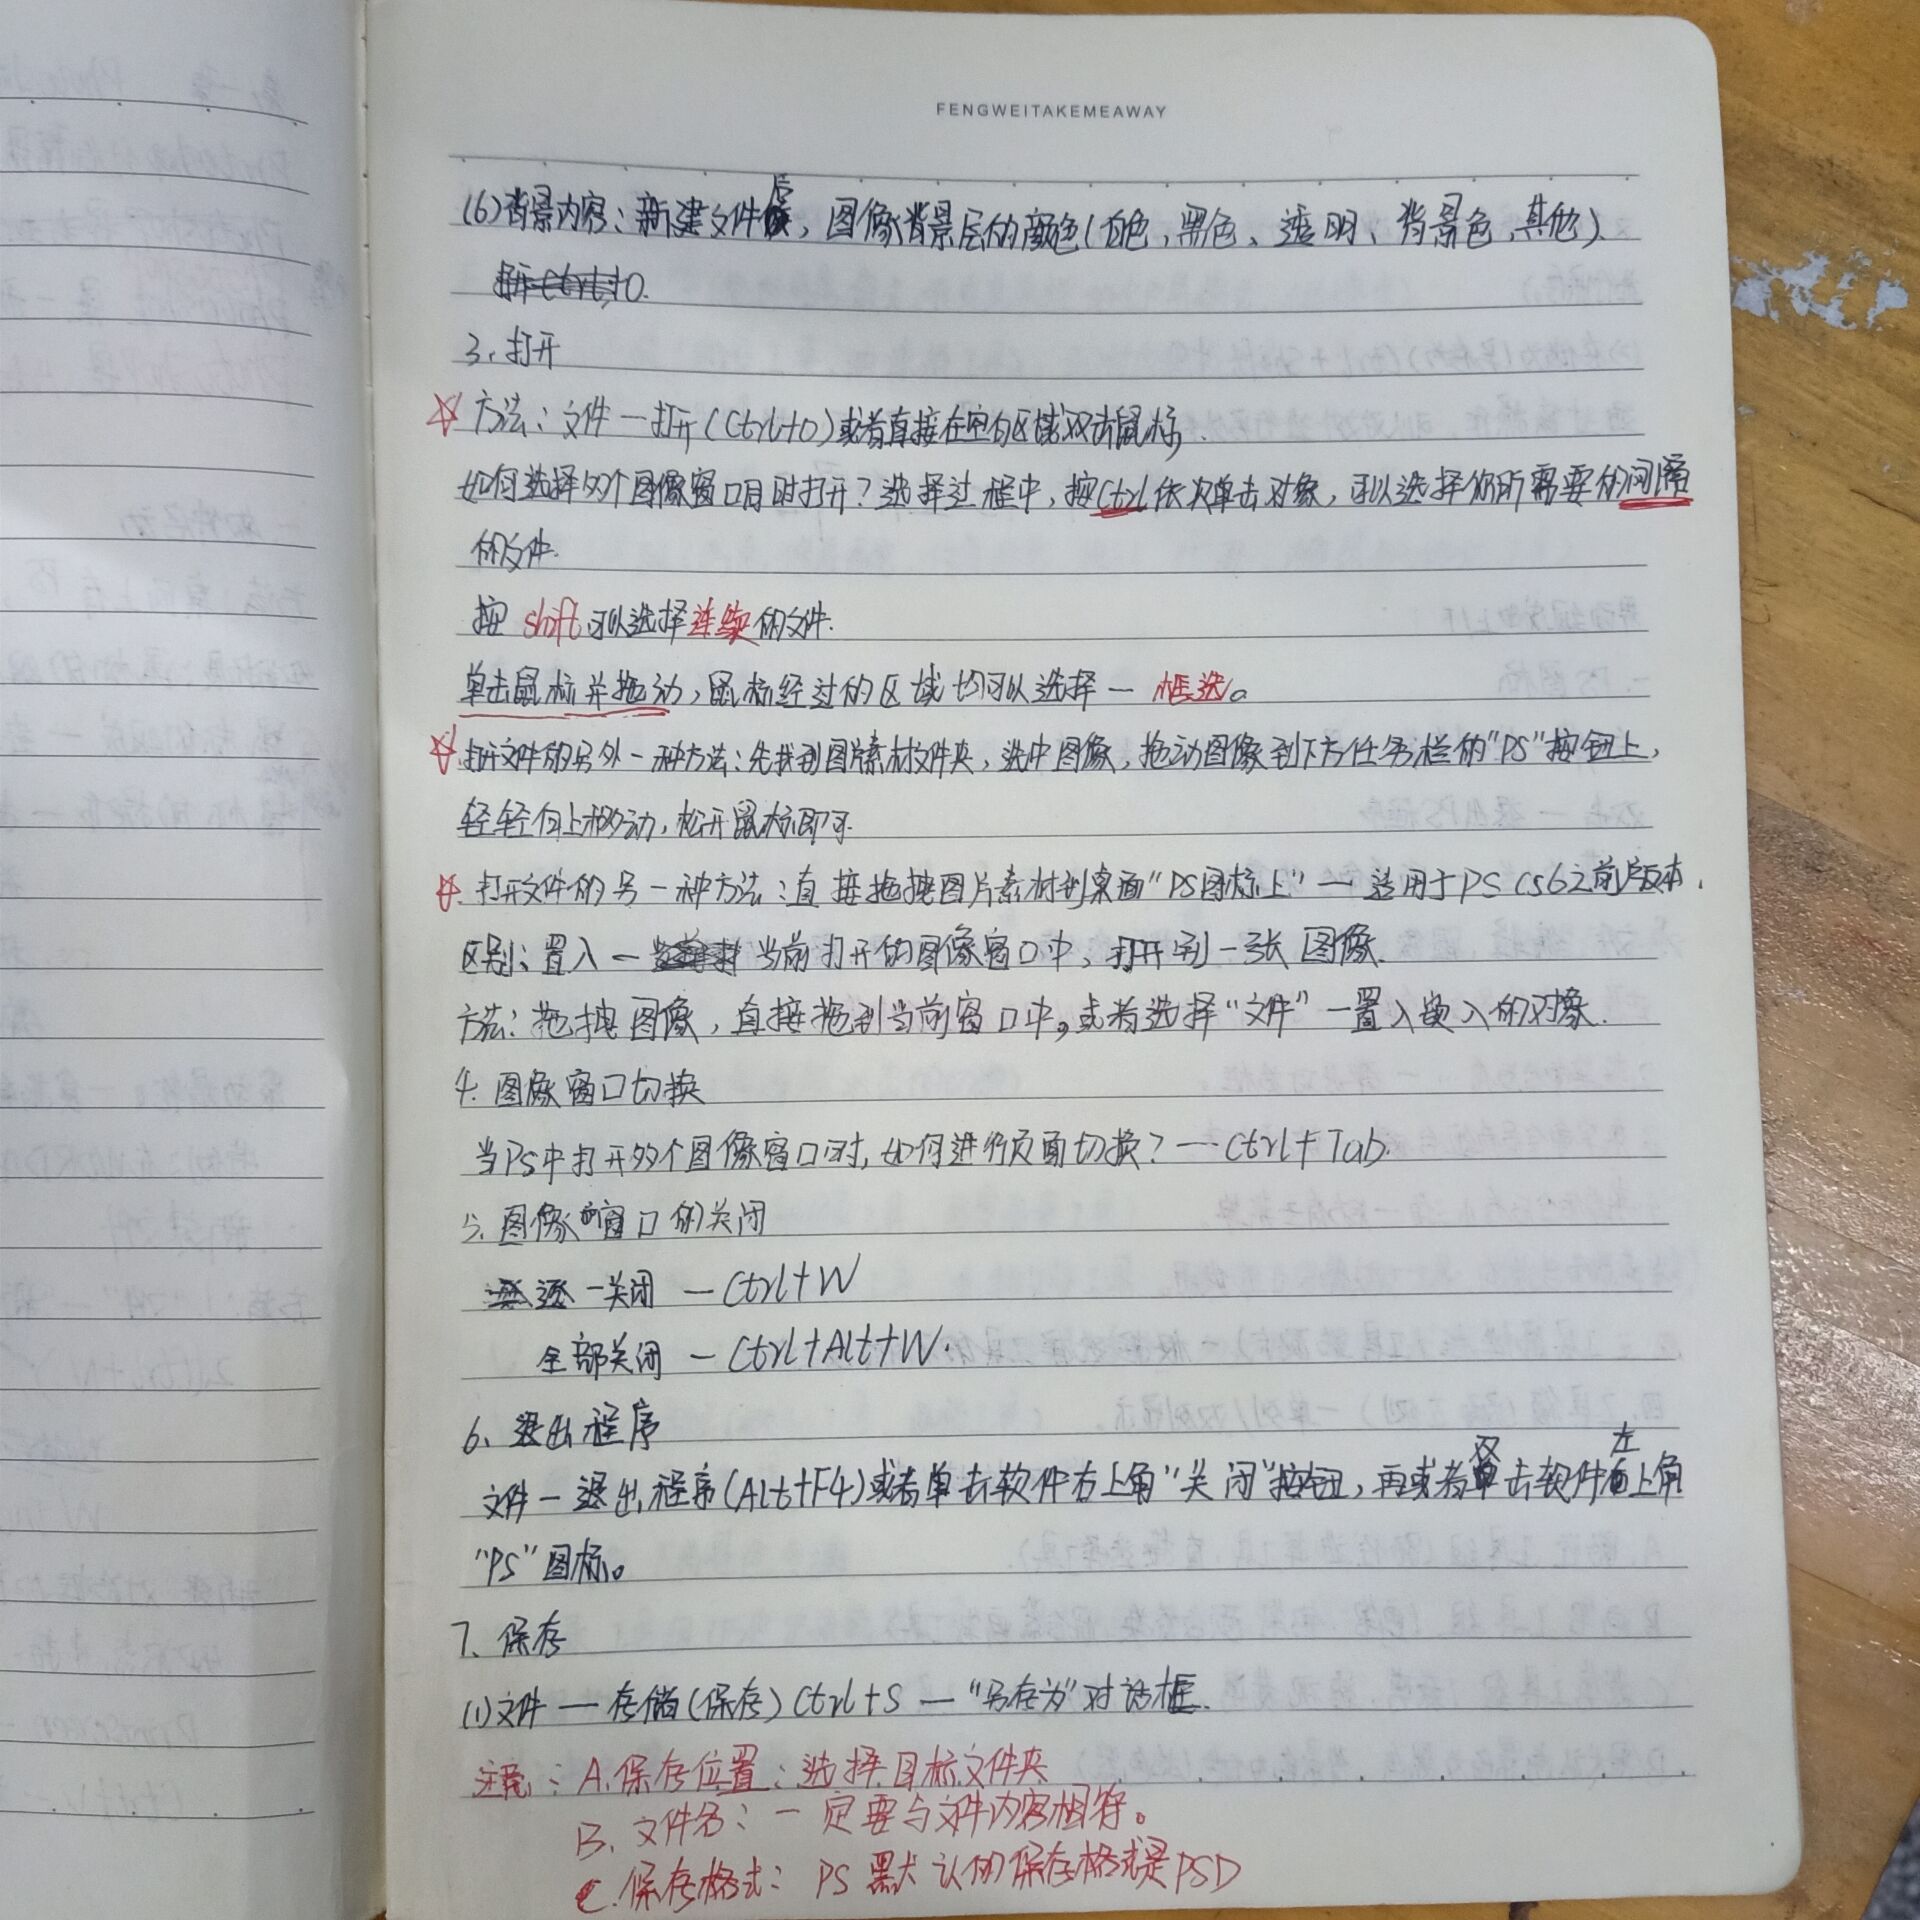 FENGWEITAKEMEAWAY
(6)背景内容：新建文件后，图像背景层的颜色(白色、黑色、透明、背景色、其他).
3、打开
方法：文件一打开(Ctrl+O)或者直接在空白区域双击鼠标.
如何选择多个图像窗口同时打开？选择过程中，按Ctrl依次单击对象，可以选择你所需要的间隔
的文件.
按 shift 可以选择连续的文件.
单击鼠标并拖动，鼠标经过的区域均可以选择一 框选。
打开文件的另外一种方法：先找到图片素材文件夹，选中图像，拖动图像到下方任务栏的"PS"按钮上，
轻轻向上移动，松开鼠标即可.
打开文件的另一种方法：直接拖拽图片素材到桌面"PS图标上"一 适用于PS CS6之前版本.
区别：置入一 当前打开的图像窗口中，打开到一张图像.
方法：拖拽图像，直接拖到当前窗口中。或者选择"文件"一置入嵌入的对象.
4. 图像窗口切换
当PS中打开多个图像窗口时，如何进行页面切换？一 Ctrl+Tab.
5. 图像窗口的关闭
逐一关闭 一 Ctrl+W
全部关闭 一 Ctrl+Alt+W.
6、退出程序
文件一退出程序(Alt+F4)或者单击软件右上角"关闭"按钮，再或者双击软件左上角
"PS"图标。
7、保存
(1)文件 一 存储(保存) Ctrl+S 一 "另存为"对话框.
注意：A.保存位置：选择目标文件夹
B、文件名：一定要与文件内容相符。
C.保存格式：PS 默认的保存格式是PSD